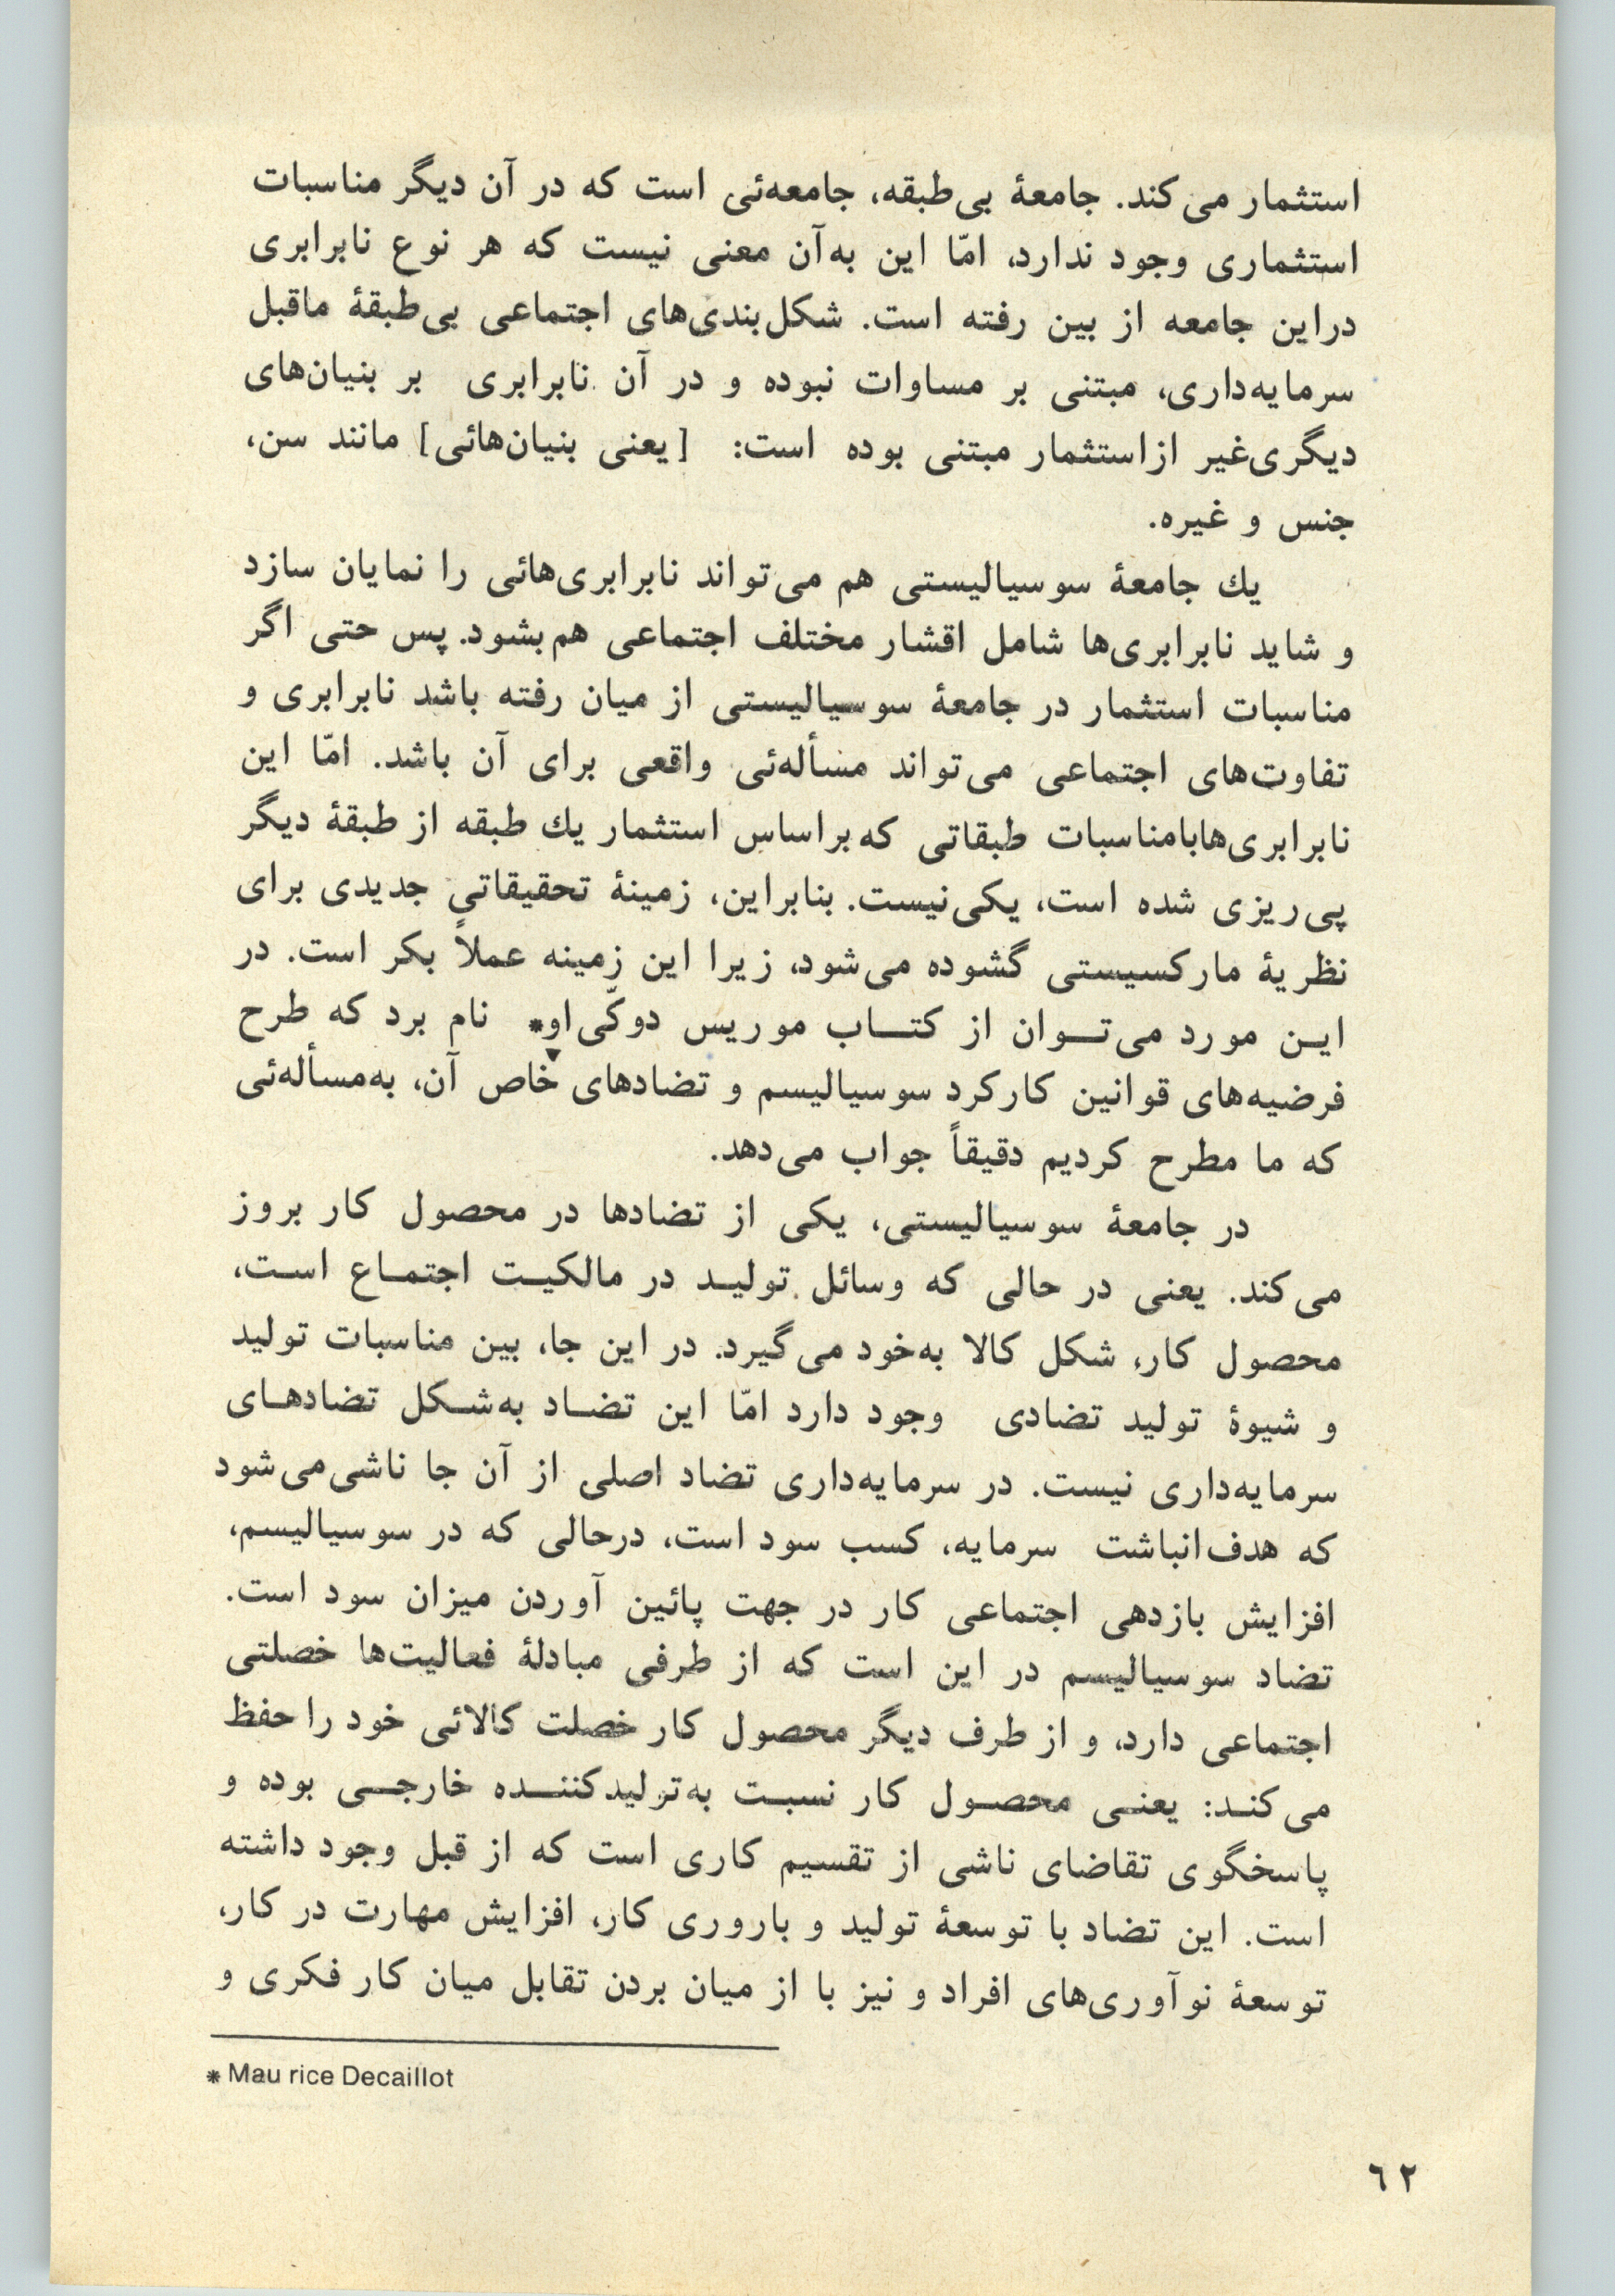 استثمار می‌کند. جامعهٔ بی‌طبقه، جامعه‌ئی است که در آن دیگر مناسبات
استثماری وجود ندارد، امّا این به‌آن معنی نیست که هر نوع نابرابری
دراین جامعه از بین رفته است. شکل‌بندی‌های اجتماعی بی‌طبقهٔ ماقبل
سرمایه‌داری، مبتنی بر مساوات نبوده و در آن نابرابری بر بنیان‌های
دیگری‌غیر ازاستثمار مبتنی بوده است: [یعنی بنیان‌هائی] مانند سن،
جنس و غیره.
یك جامعهٔ سوسیالیستی هم می‌تواند نابرابری‌هائی را نمایان سازد
و شاید نابرابری‌ها شامل اقشار مختلف اجتماعی هم‌بشود. پس حتی اگر
مناسبات استثمار در جامعهٔ سوسیالیستی از میان رفته باشد نابرابری و
تفاوت‌های اجتماعی می‌تواند مسأله‌ئی واقعی برای آن باشد. امّا این
نابرابری‌هابامناسبات طبقاتی که براساس استثمار یك طبقه از طبقهٔ دیگر
پی‌ریزی شده است، یکی‌نیست. بنابراین، زمینهٔ تحقیقاتی جدیدی برای
نظریهٔ مارکسیستی گشوده می‌شود، زیرا این زمینه عملاً بکر است. در
ایـن مورد می‌تـوان از کتـاب موریس دوکّی‌او* نام برد که طرح
فرضیه‌های قوانین کارکرد سوسیالیسم و تضادهای خاص آن، به‌مسأله‌ئی
که ما مطرح کردیم دقیقاً جواب می‌دهد.
در جامعهٔ سوسیالیستی، یکی از تضادها در محصول کار بروز
می‌کند. یعنی در حالی که وسائل تولیـد در مالکیـت اجتمـاع اسـت،
محصول کار، شکل کالا به‌خود می‌گیرد. در این جا، بین مناسبات تولید
و شیوهٔ تولید تضادی وجود دارد امّا این تضـاد به‌شـکل تضادهـای
سرمایه‌داری نیست. در سرمایه‌داری تضاد اصلی از آن جا ناشی‌می‌شود
که هدف‌انباشت سرمایه، کسب سود است، درحالی که در سوسیالیسم،
افزایش بازدهی اجتماعی کار در جهت پائین آوردن میزان سود است.
تضاد سوسیالیسم در این است که از طرفی مبادلهٔ فعالیت‌ها خصلتی
اجتماعی دارد، و از طرف دیگر محصول کار خصلت کالائی خود را حفظ
می‌کنـد: یعنـی محصـول کار نسبـت به‌تولیدکننـده خارجـی بوده و
پاسخگوی تقاضای ناشی از تقسیم کاری است که از قبل وجود داشته
است. این تضاد با توسعهٔ تولید و باروری کار، افزایش مهارت در کار،
توسعهٔ نوآوری‌های افراد و نیز با از میان بردن تقابل میان کار فکری و
* Mau rice Decaillot
٦٢